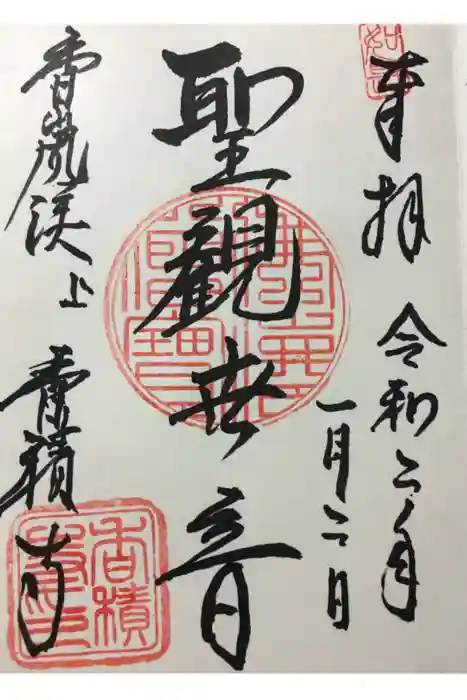 奉拝 令和二年
一月二日
聖觀世音
香嵐渓上 香積寺
香積寺印